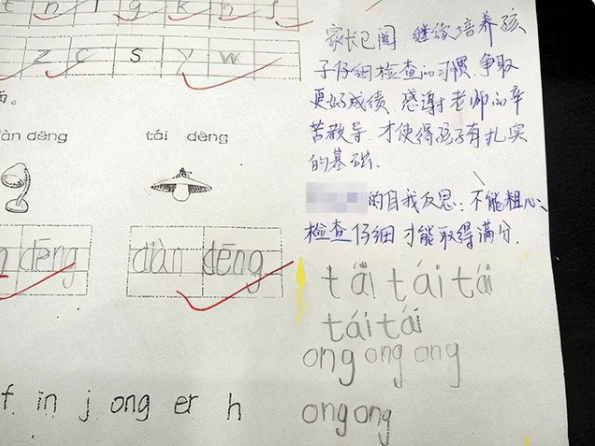 t n l g k h f
z c s y w
àn dēng tái dēng
dēng diàn dēng
f in j ong er h
家长已阅 继续培养孩
子仔细检查的习惯,争取
更好成绩,感谢老师的辛
苦教导,才使得孩子有扎实
的基础.
的自我反思:不能粗心,
检查仔细才能取得满分.
tái tái tái
tái tái
ong ong ong
ong ong